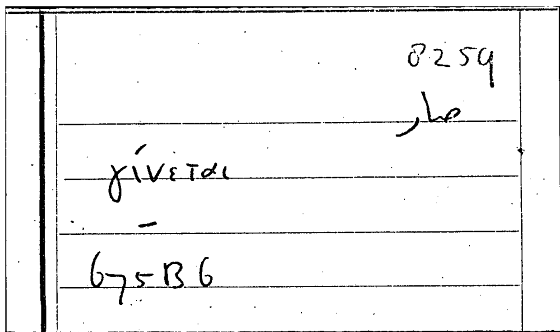 8259
صار
γίνεται
–
675B6